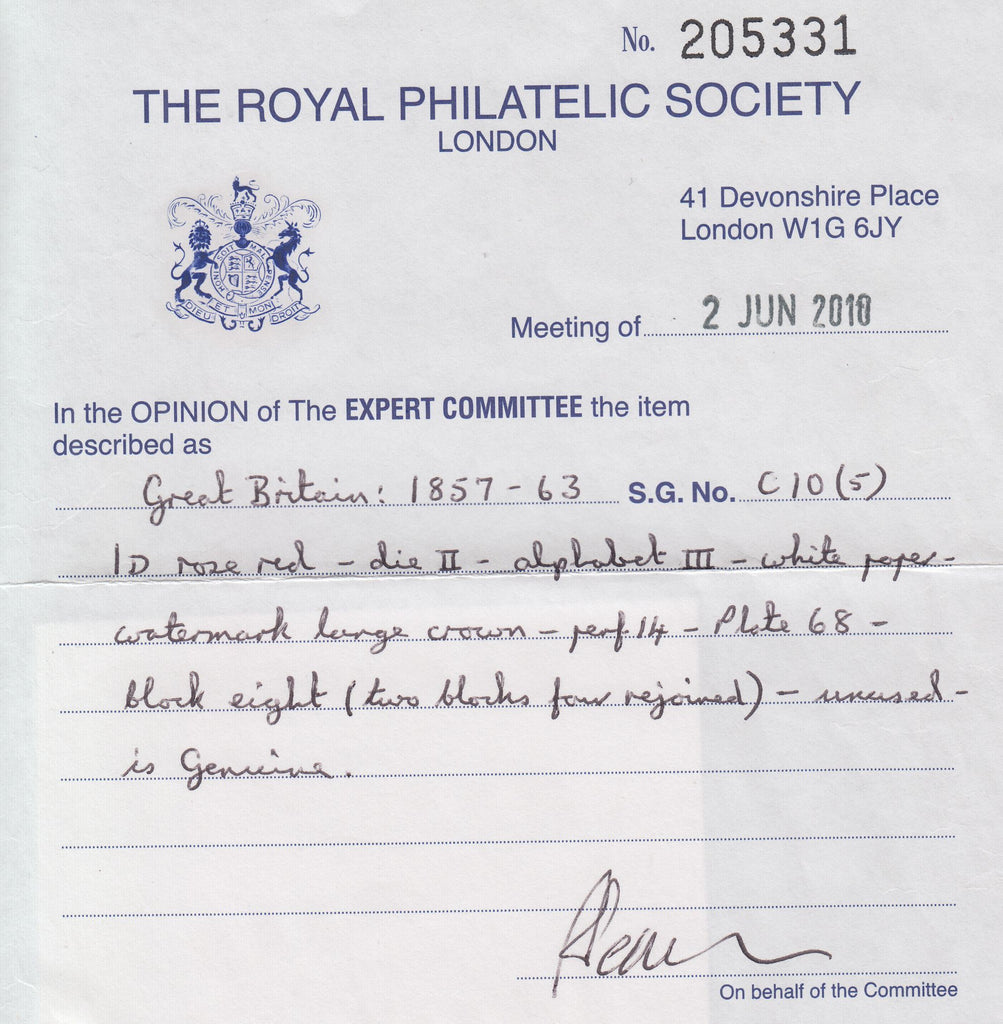 No. 205331
THE ROYAL PHILATELIC SOCIETY
LONDON
41 Devonshire Place
London W1G 6JY
HONI SOIT MAL PENSE
DIEU ET MON DROIT
Meeting of 2 JUN 2010
In the OPINION of The EXPERT COMMITTEE the item
described as
Great Britain: 1857-63 S.G. No. C10(5)
1D rose red - die II - alphabet III - white paper -
watermark large crown - perf.14 - Plate 68 -
block eight (two blocks four rejoined) - unused -
is Genuine.
On behalf of the Committee